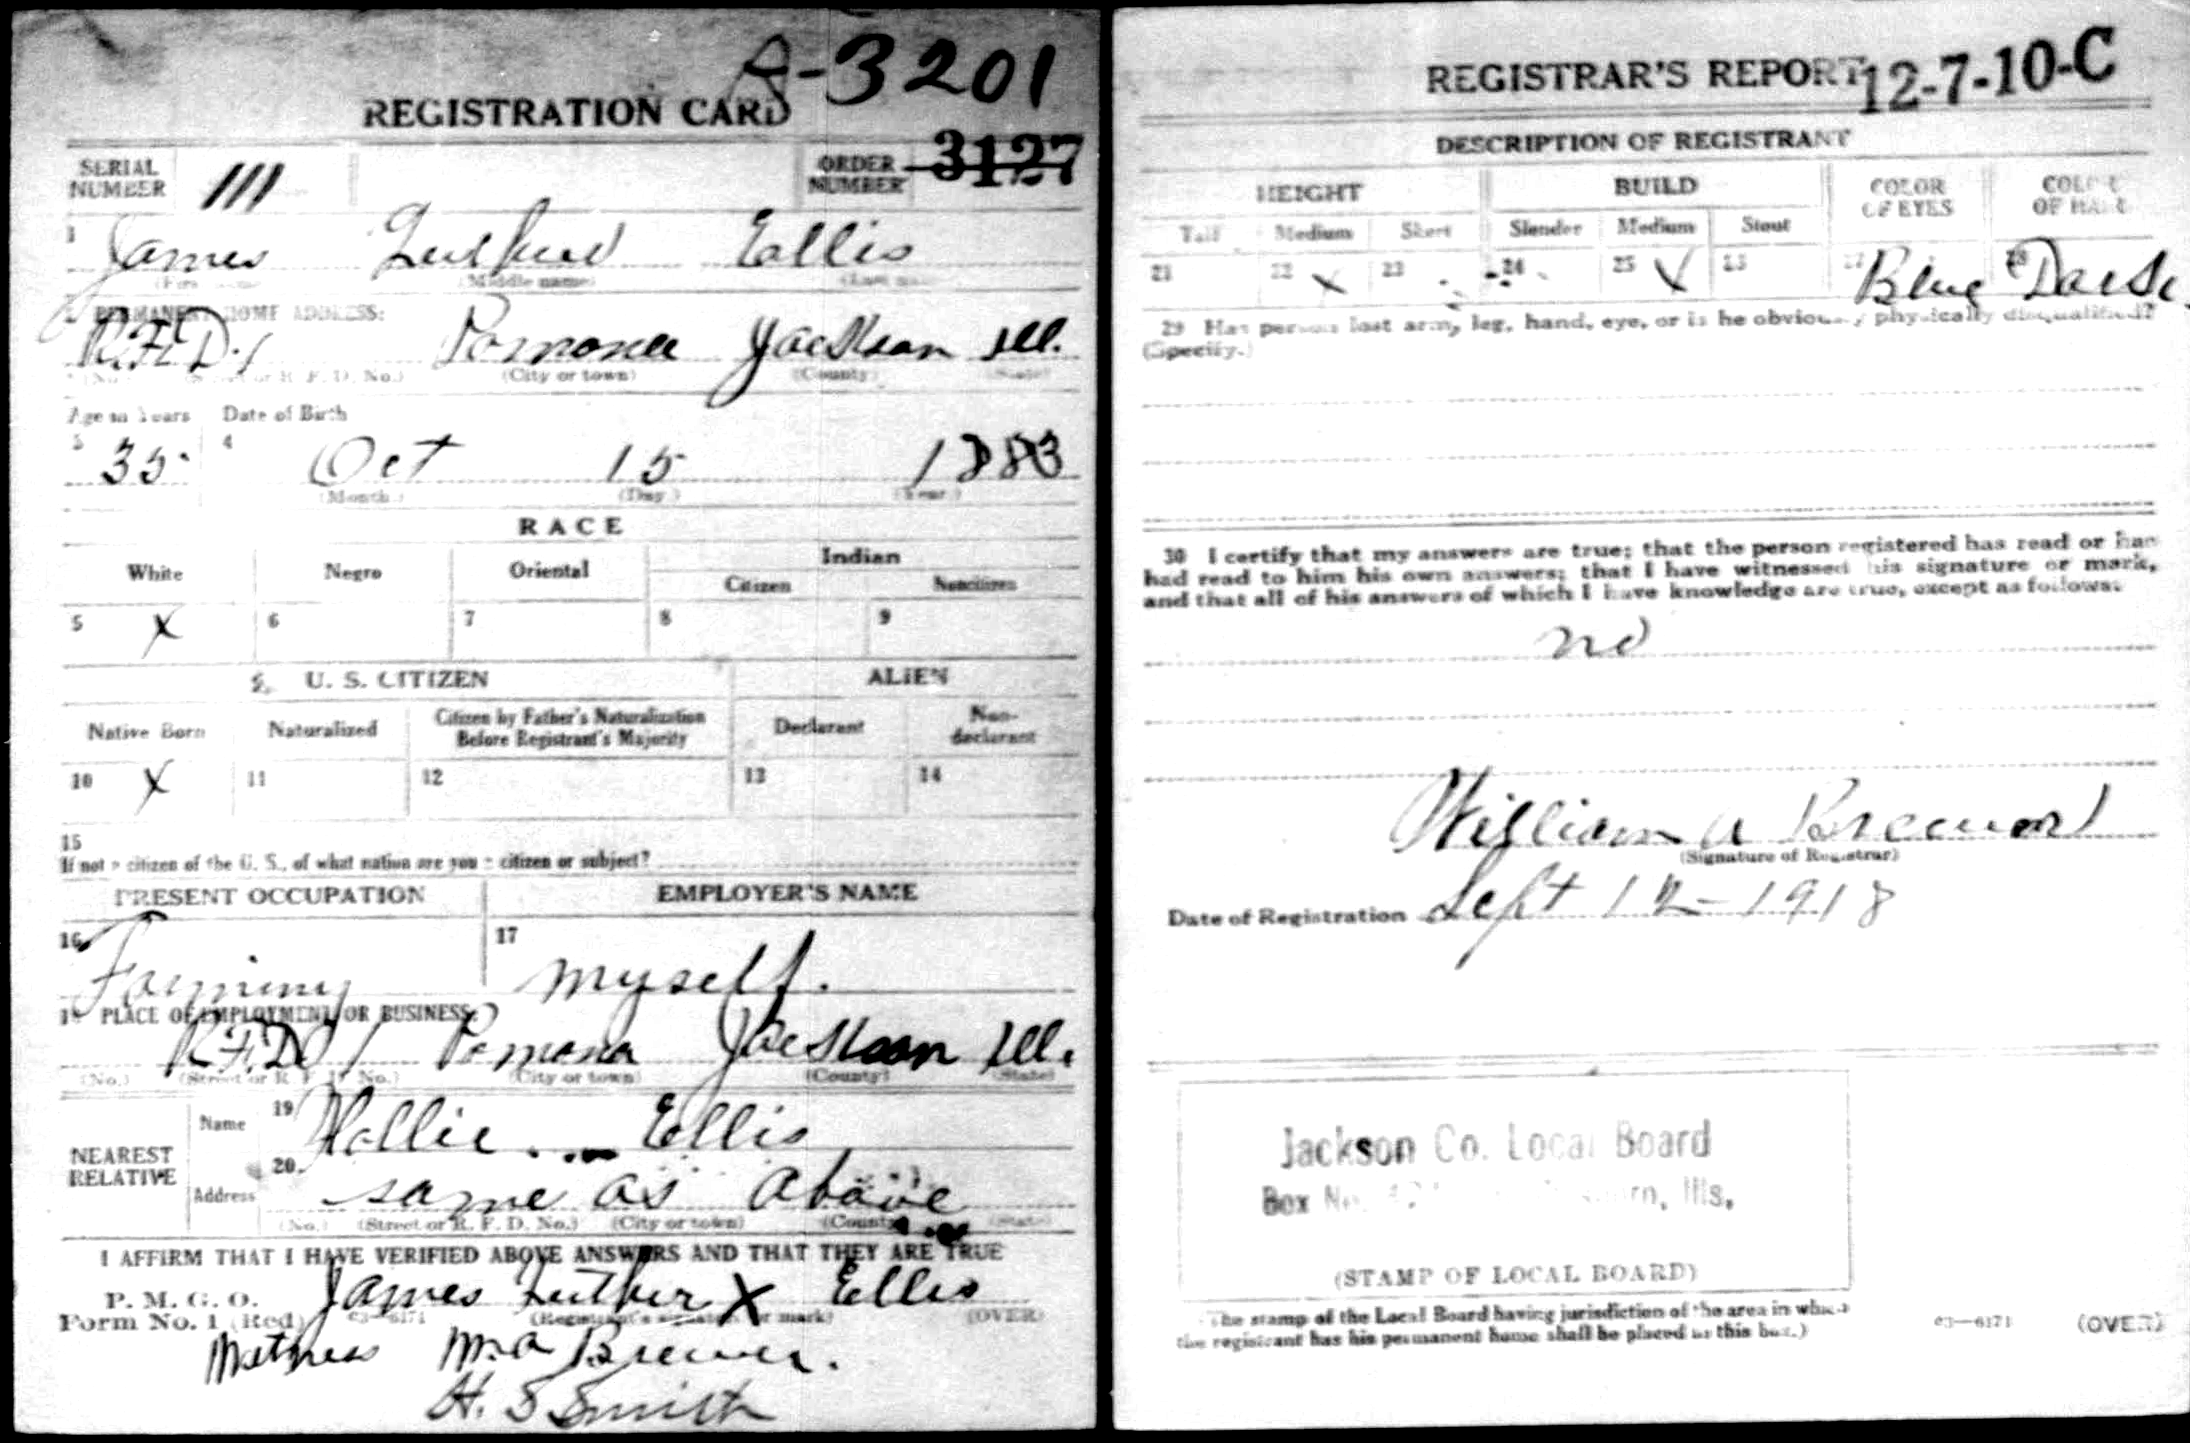 A-3201
REGISTRATION CARD
SERIAL NUMBER 111 ORDER NUMBER 3127
1 James Ellis
(Middle name)
PERMANENT HOME ADDRESS:
R.F.D. 1 Pomona Jackson Ill.
(No.) (Street or R. F. D. No.) (City or town) (County) (State)
Age in Years Date of Birth
3 35 4 Oct 15 1883
(Month) (Day) (Year)
RACE
White Negro Oriental Indian
Citizen Noncitizen
5 X 6 7 8 9
U. S. CITIZEN ALIEN
Native Born Naturalized Citizen by Father's Naturalization Before Registrant's Majority Declarant Non-declarant
10 X 11 12 13 14
15
If not a citizen of the U. S., of what nation are you a citizen or subject?
PRESENT OCCUPATION EMPLOYER'S NAME
16 Farming 17 myself.
18 PLACE OF EMPLOYMENT OR BUSINESS:
R.F.D. 1 Pomona Jackson Ill.
(No.) (Street or R. F. D. No.) (City or town) (County) (State)
NEAREST RELATIVE Name 19 Ellis
Address 20 same as above
(No.) (Street or R. F. D. No.) (City or town) (County) (State)
I AFFIRM THAT I HAVE VERIFIED ABOVE ANSWERS AND THAT THEY ARE TRUE
P. M. G. O.
Form No. 1 (Red) 03—6171 James Luther X Ellis
(Registrant's signature or mark) (OVER)
Witness Brewer.
H. S Smith
REGISTRAR'S REPORT 12-7-10-C
DESCRIPTION OF REGISTRANT
HEIGHT BUILD COLOR OF EYES COLOR OF HAIR
Tall Medium Short Slender Medium Stout
21 22 X 23 24 25 X 26 27 Blue 28 Dark
29 Has person lost arm, leg, hand, eye, or is he obviously physically disqualified?
(Specify.)
30 I certify that my answers are true; that the person registered has read or has
had read to him his own answers; that I have witnessed his signature or mark,
and that all of his answers of which I have knowledge are true, except as follows:
no
William A
(Signature of Registrar)
Date of Registration Sept 12-1918
Jackson Co. Local Board
Box No. Ills,
(STAMP OF LOCAL BOARD)
(The stamp of the Local Board having jurisdiction of the area in which
the registrant has his permanent home shall be placed in this box.)
03—6171 (OVER)